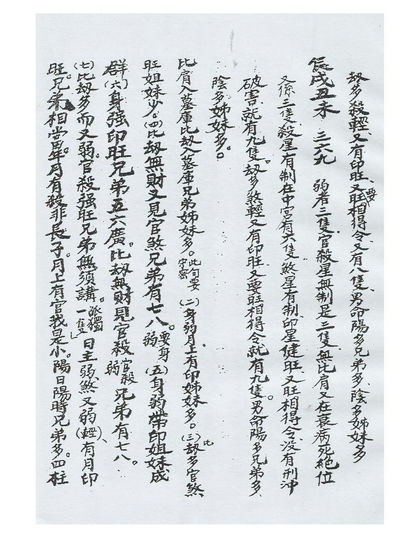 劫多殺輕、又有印旺、又要旺相得令、又有八隻、男命陽多兄弟多、陰多姊妹多
辰戌丑未 三六九 弱者三隻、官殺星無制是三隻、無比肩又在衰病死絕位
又係三隻、殺星有制在中宮有六隻、煞星有制、印星健旺又旺相得令、沒有刑沖
破害就有九隻、劫多煞輕又有印旺又要旺相得令就有九隻。男命陽多兄弟多、
陰多姊妹多。
比肩入墓庫比劫入墓庫兄弟姊妹多。此句要守密(二)身弱月上有印姊妹多。(三)比劫多官煞
旺姐妹少。(四)比劫無財又見官煞兄弟有七八。要身弱(五)身弱帶印姐妹成
群(六)身强印旺兄弟五六廣。比劫無財見官殺官殺弱兄弟有七八。
(七)比劫多而又弱官殺强旺兄弟無須講。派獨一隻日主弱煞又弱(輕)、有月印
旺。兄弟相当、年月有破非長子。月上有官我是小。陽日陽時兄弟多。四柱